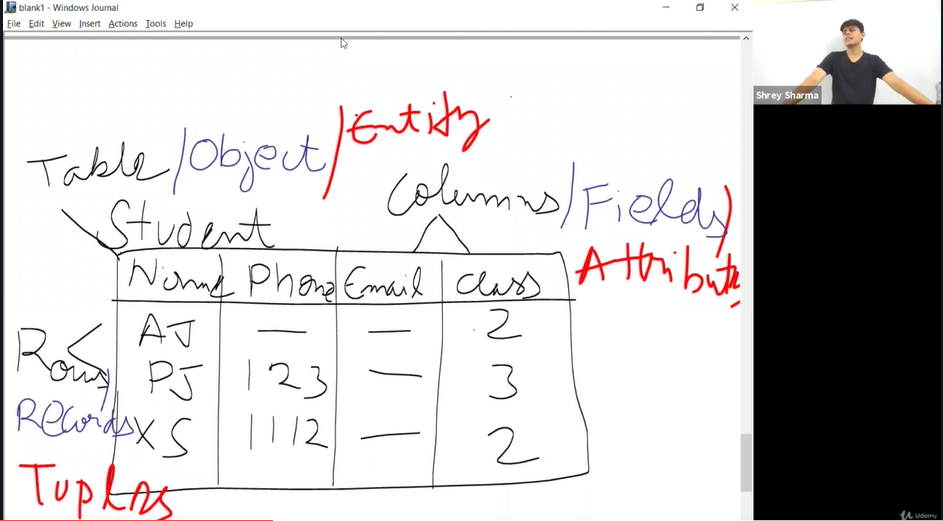 blank1 - Windows Journal
File Edit View Insert Actions Tools Help
Shrey Sharma
Table/Object/Entity
Columns/Fields/
Attributes
Student
Name Phone Email class
AJ — — 2
PJ 123 — 3
XS 1112 — 2
Rows/
Records
Tuples
Udemy